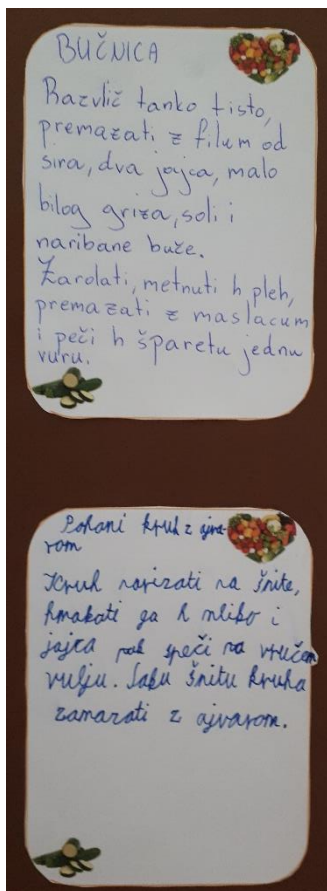 BUČNICA
Razvlič tanko tisto,
premazati z filum od
sira, dva jajca, malo
bilog griza, soli i
naribane buže.
Zarolati, metnuti h pleh,
premazati z maslacum
i peči h šparetu jednu
vuru.
Pohani kruh z ajva-
rom
Kruh narizati na šnite,
hmakati ga h mliko i
jajca pak speči na vručem
vulju. Saku šnitu kruha
zamazati z ajvarom.